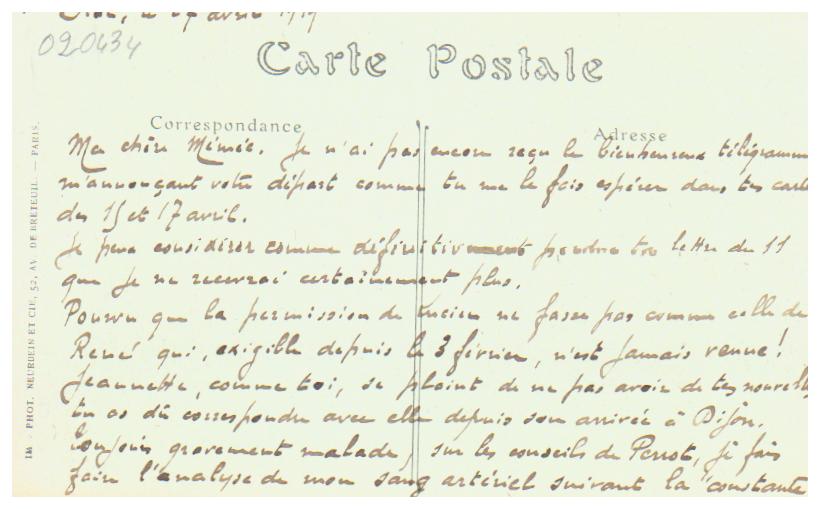 le 27 avril 1919
020434
Carte Postale
Correspondance
Adresse
Ma chère Mémée. Je n'ai pas encore reçu le bienheureux télégramme
m'annonçant votre départ comme tu me le fais espérer dans tes cartes
des 15 et 17 avril.
Je peux considérer comme définitivement perdue ta lettre du 11
que je ne recevrai certainement plus.
Pourvu que la permission de Lucien ne fasse pas comme celle de
René qui, exigible depuis le 3 février, n'est jamais venue!
Jeannette, comme toi, se plaint de ne pas avoir de tes nouvelles
tu as dû correspondre avec elle depuis son arrivée à Dijon.
Toujours gravement malade, sur les conseils de Perrot, je fais
faire l'analyse de mon sang artériel suivant la constante
IM - PHOT. NEURDEIN ET CIE, 52, AV. DE BRETEUIL. — PARIS.